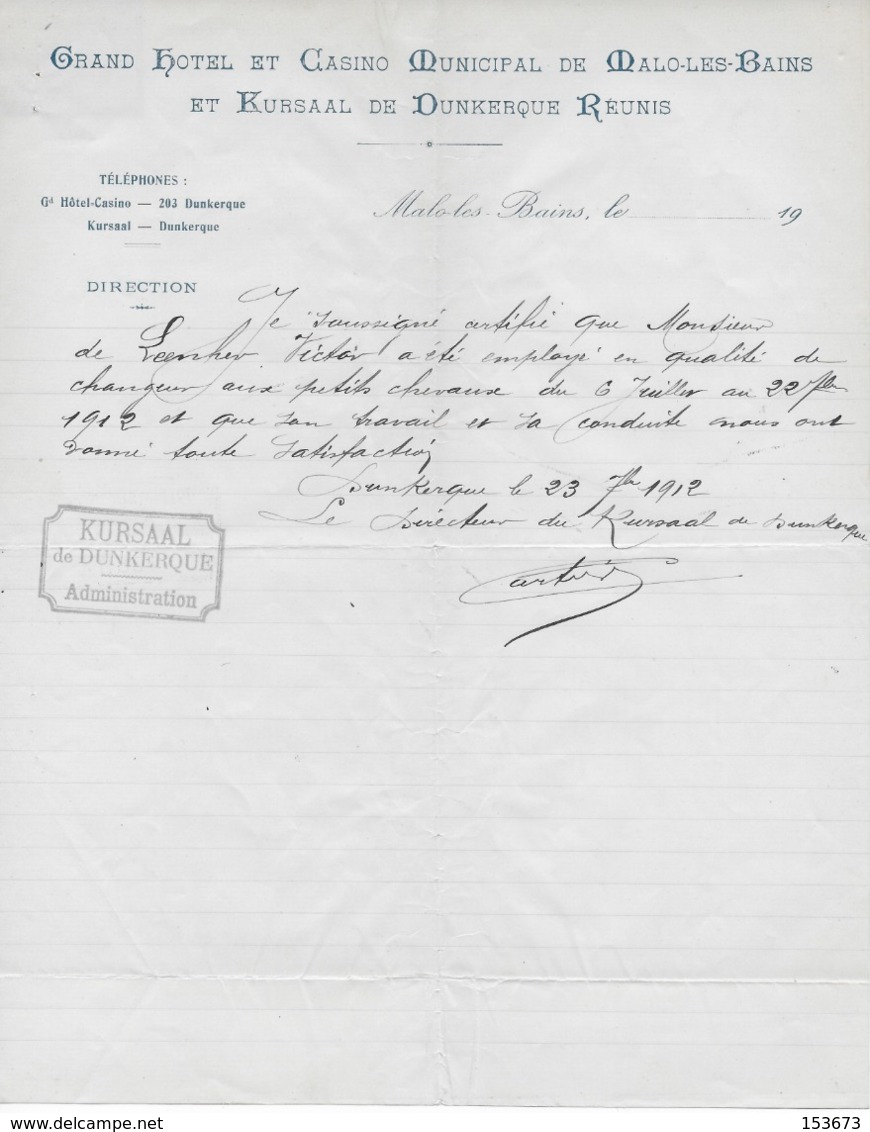 GRAND HOTEL ET CASINO MUNICIPAL DE MALO-LES-BAINS
ET KURSAAL DE DUNKERQUE RÉUNIS
TÉLÉPHONES :
Gd Hôtel-Casino — 203 Dunkerque
Kursaal — Dunkerque
Malo-les-Bains, le 19
DIRECTION
Je soussigné certifie que Monsieur
de Leenher Victor a été employé en qualité de
changeur aux petits chevaux du 6 Juillet au 22 7bre
1912 et que son travail et sa conduite nous ont
donné toute satisfaction
Dunkerque le 23 7bre 1912
Le Directeur du Kursaal de Dunkerque
KURSAAL
de DUNKERQUE
Administration
www.delcampe.net
153673